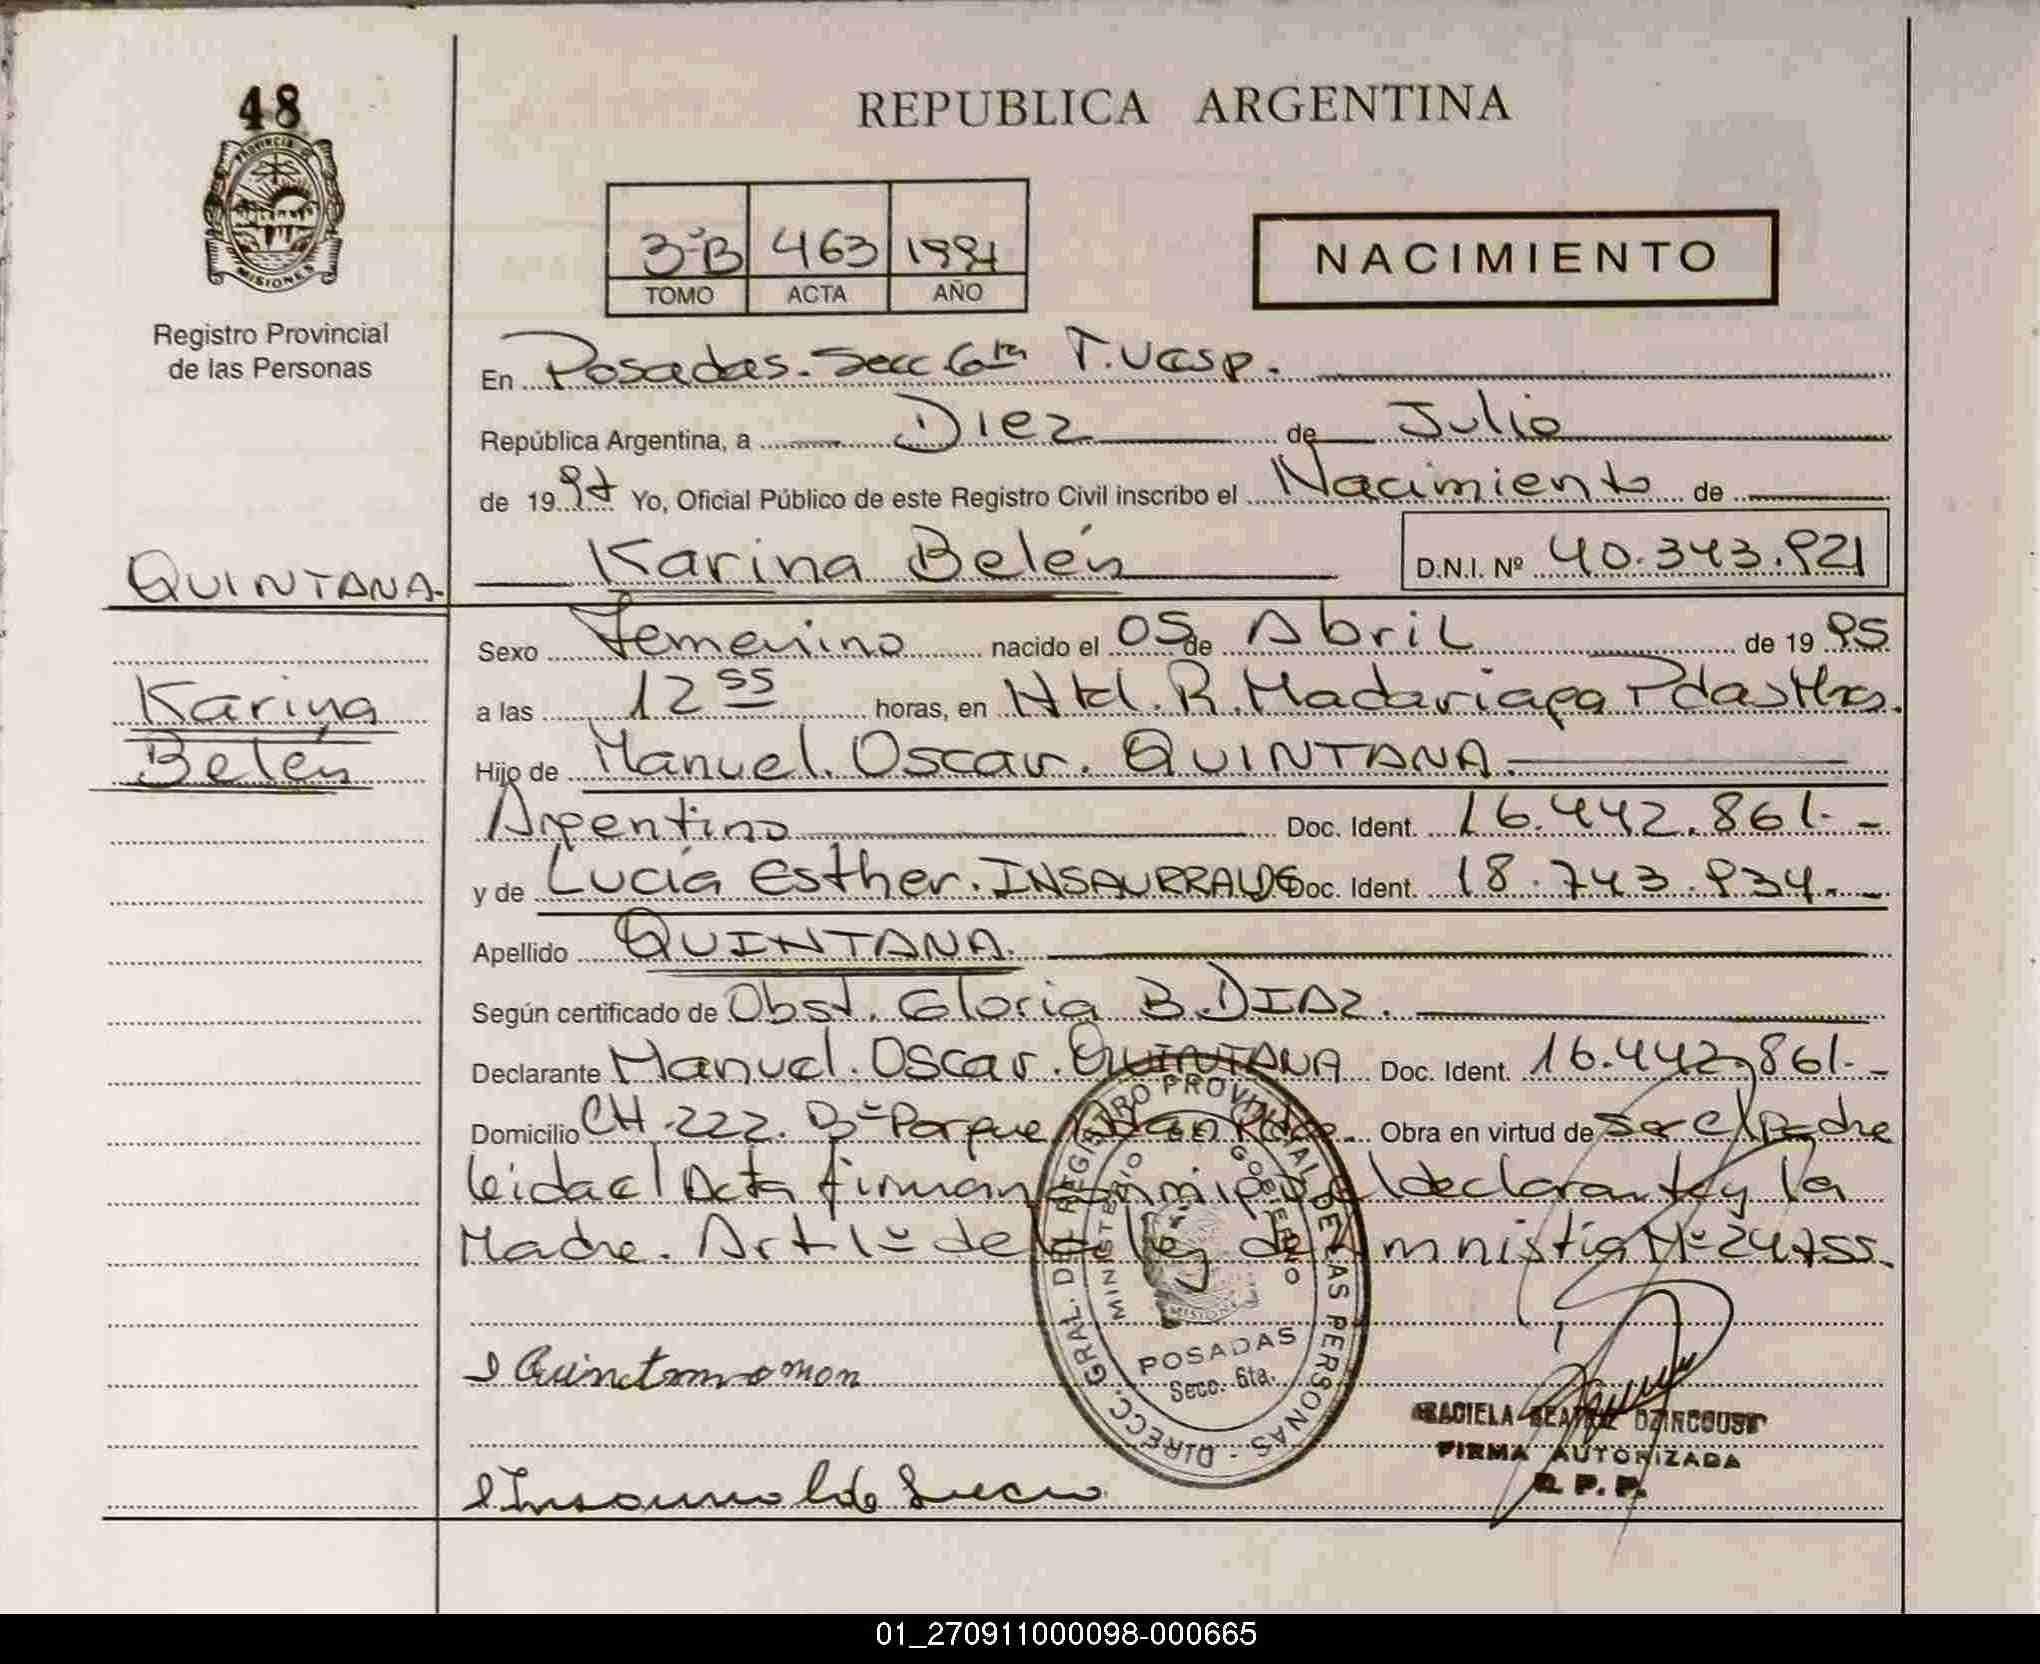 48
PROVINCIA DE
MISIONES
Registro Provincial
de las Personas
REPUBLICA ARGENTINA
3ºB 463 1997
TOMO ACTA AÑO
NACIMIENTO
En Posadas. Secc 6ta T.
República Argentina, a Diez de Julio
de 1997 Yo, Oficial Público de este Registro Civil inscribo el Nacimiento de
Karina Belén D.N.I. Nº 40.343.921
QUINTANA.
Karina
Belén
Sexo Femenino nacido el 05 de Abril de 1995
a las 12 55 horas, en Htal. R. Madariaga Pdas Mns.
Hijo de Manuel. Oscar. QUINTANA.
Argentino Doc. Ident. 16.442.861.-
y de Lucía Esther. INSAURRALDE Doc. Ident. 18.743.934.-
Apellido QUINTANA.
Según certificado de Obst. Gloria B. DIAZ.
Declarante Manuel. Oscar. QUINTANA Doc. Ident. 16.442.861.-
Domicilio CH. 222. Bº Parque Adan Pdas. Obra en virtud de ser el Padre
leida el Acta firman conmigo el declarante y la
Madre. Art 1º de la ley de Amnistia Nº 24755.
DIRECC. GRAL. DEL REGISTRO PROVINCIAL DE LAS PERSONAS -
MINISTERIO DE GOBIERNO
MISIONES
POSADAS
Secc. 6ta.
Quintana
GRACIELA BEATRIZ
FIRMA AUTORIZADA
R. P. P.
Insaurralde Lucia
01_270911000098-000665